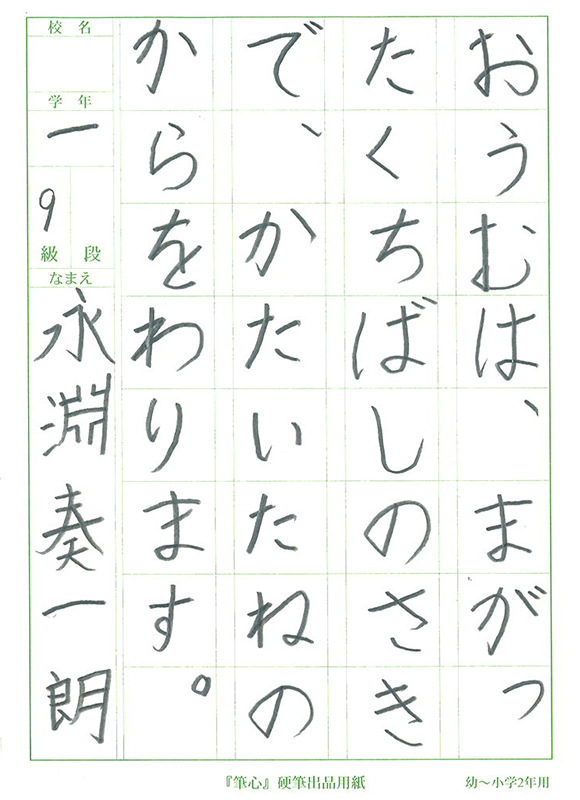 おうむは、まがっ
たくちばしのさき
で、かたいたねの
からをわります。
校名
学年
一
9
級段
なまえ
永淵奏一朗
『筆心』硬筆出品用紙
幼〜小学2年用